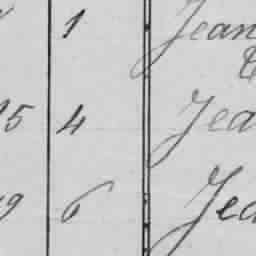 1 Jean
5 4 Jea
9 6 Jea